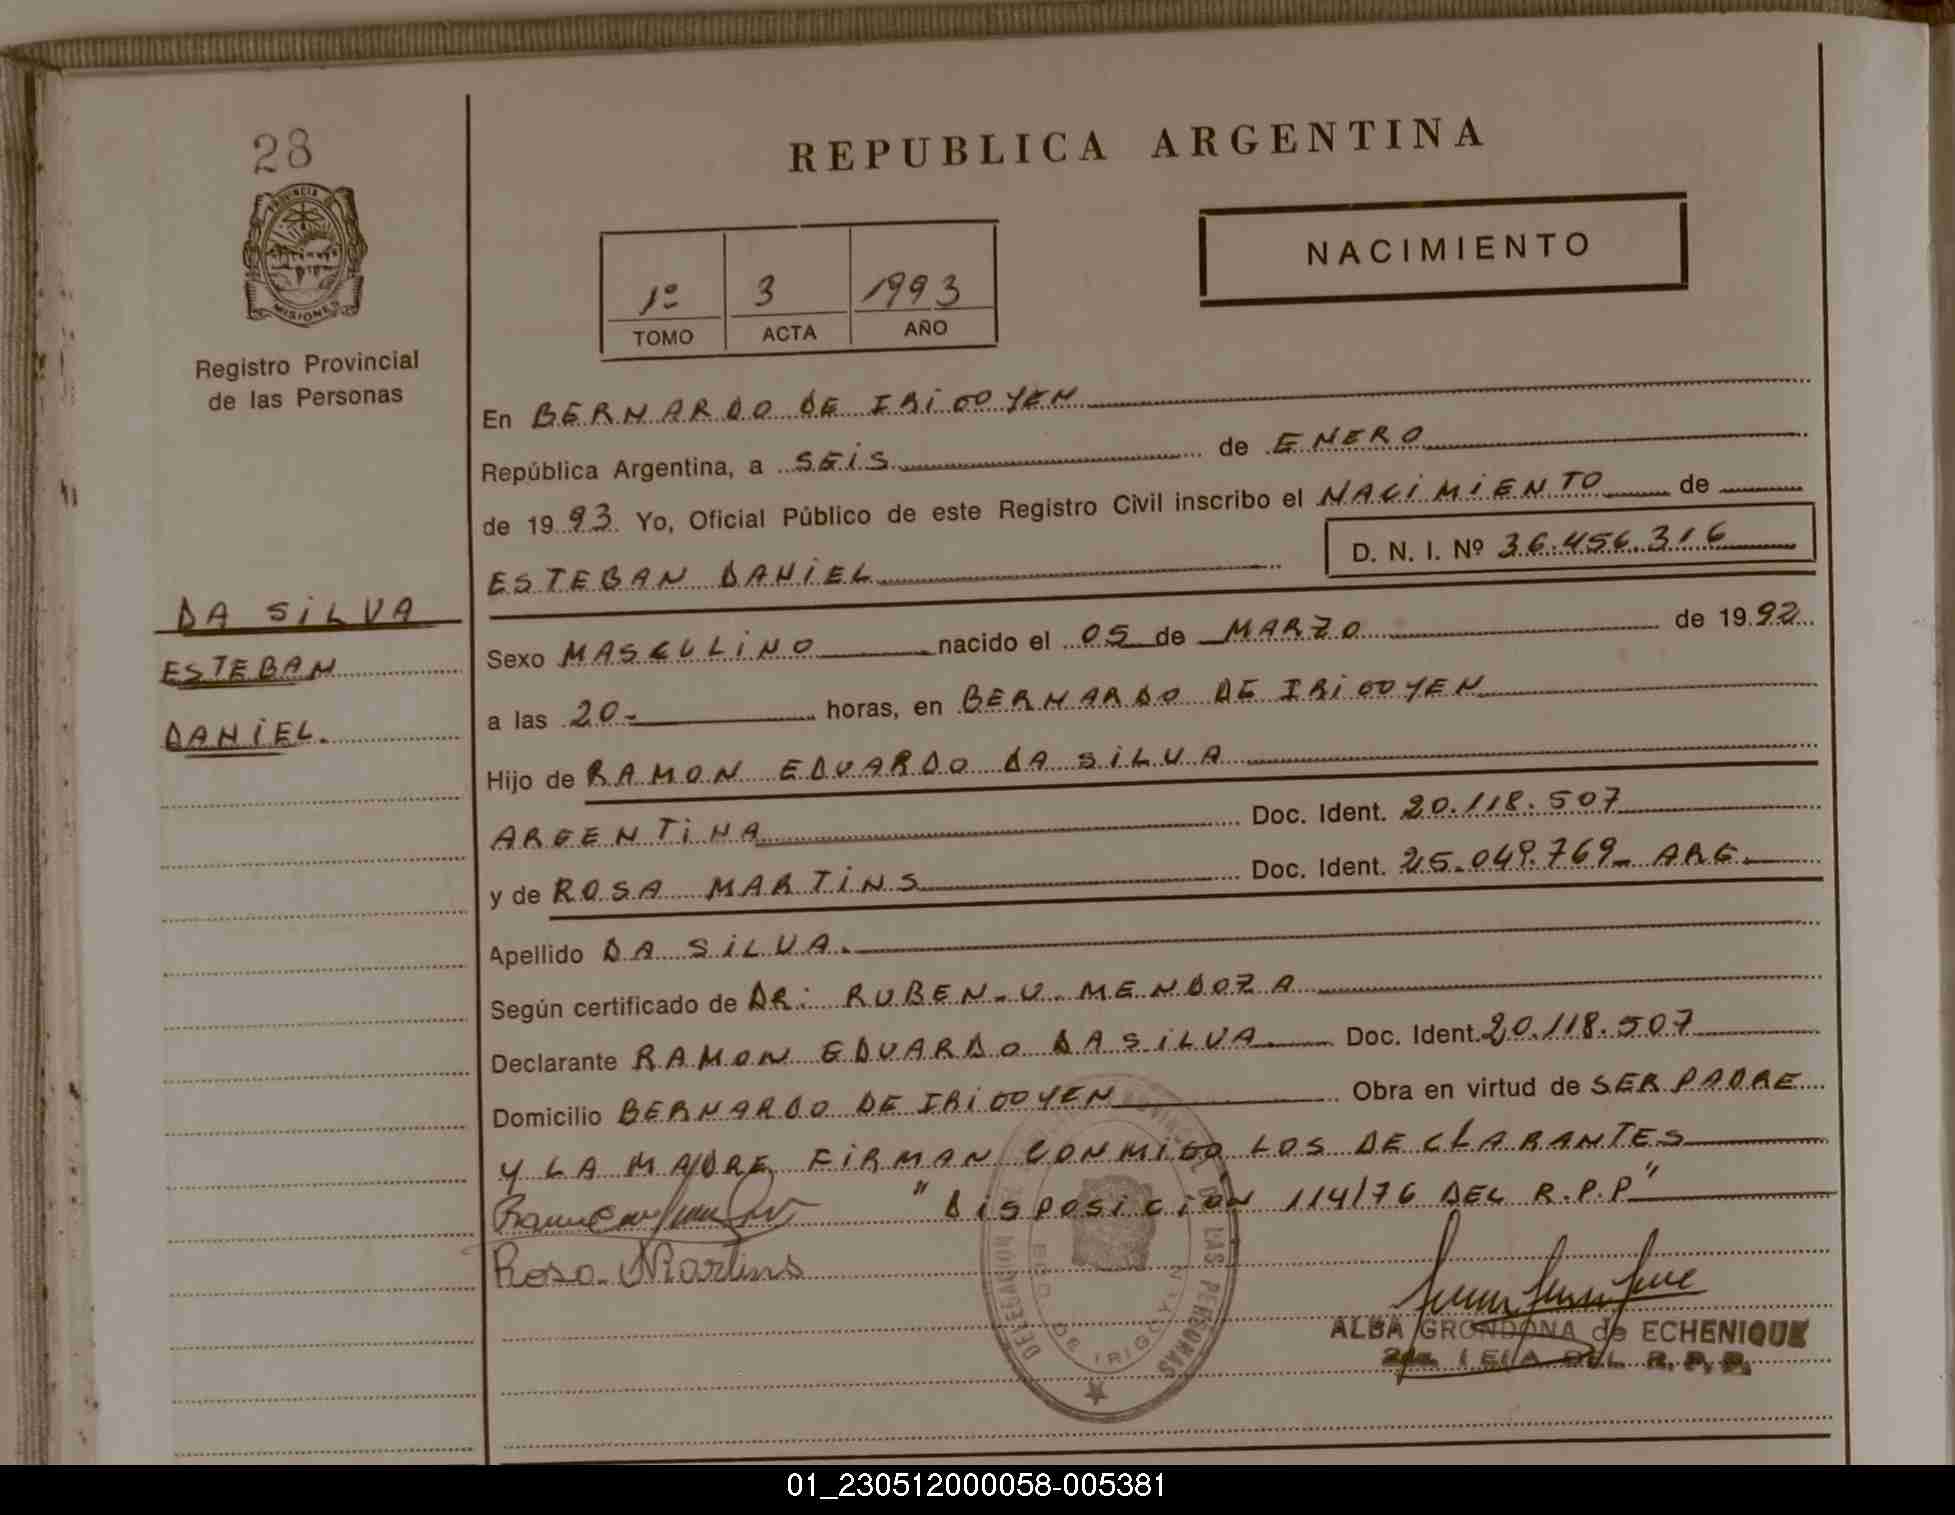 28
PROVINCIA DE
MISIONES
Registro Provincial
de las Personas
DA SILVA
ESTEBAN
DANIEL.
REPUBLICA ARGENTINA
1º 3 1993
TOMO ACTA AÑO
NACIMIENTO
En BERNARDO DE IRIGOYEN
República Argentina, a SEIS de ENERO
de 1993. Yo, Oficial Público de este Registro Civil inscribo el NACIMIENTO de
ESTEBAN DANIEL D. N. I. Nº 36.456.316
Sexo MASCULINO nacido el 05 de MARZO de 1992
a las 20- horas, en BERNARDO DE IRIGOYEN
Hijo de RAMON EDUARDO DA SILVA
ARGENTINA Doc. Ident. 20.118.507
y de ROSA MARTINS Doc. Ident. 25.049.769- ARG.
Apellido DA SILVA.
Según certificado de DR: RUBEN-U. MENDOZA
Declarante RAMON EDUARDO DA SILVA Doc. Ident. 20.118.507
Domicilio BERNARDO DE IRIGOYEN Obra en virtud de SER PADRE
Y LA MADRE FIRMAN CONMIGO LOS DECLARANTES
"DISPOSICIÓN 114/76 DEL R.P.P"
Rosa Martins
DELEGACION DE LAS PERSONAS
BDO. DE IRIGOYEN
ALBA GRONDONA de ECHENIQUE
DEL R. P. P.
01_230512000058-005381